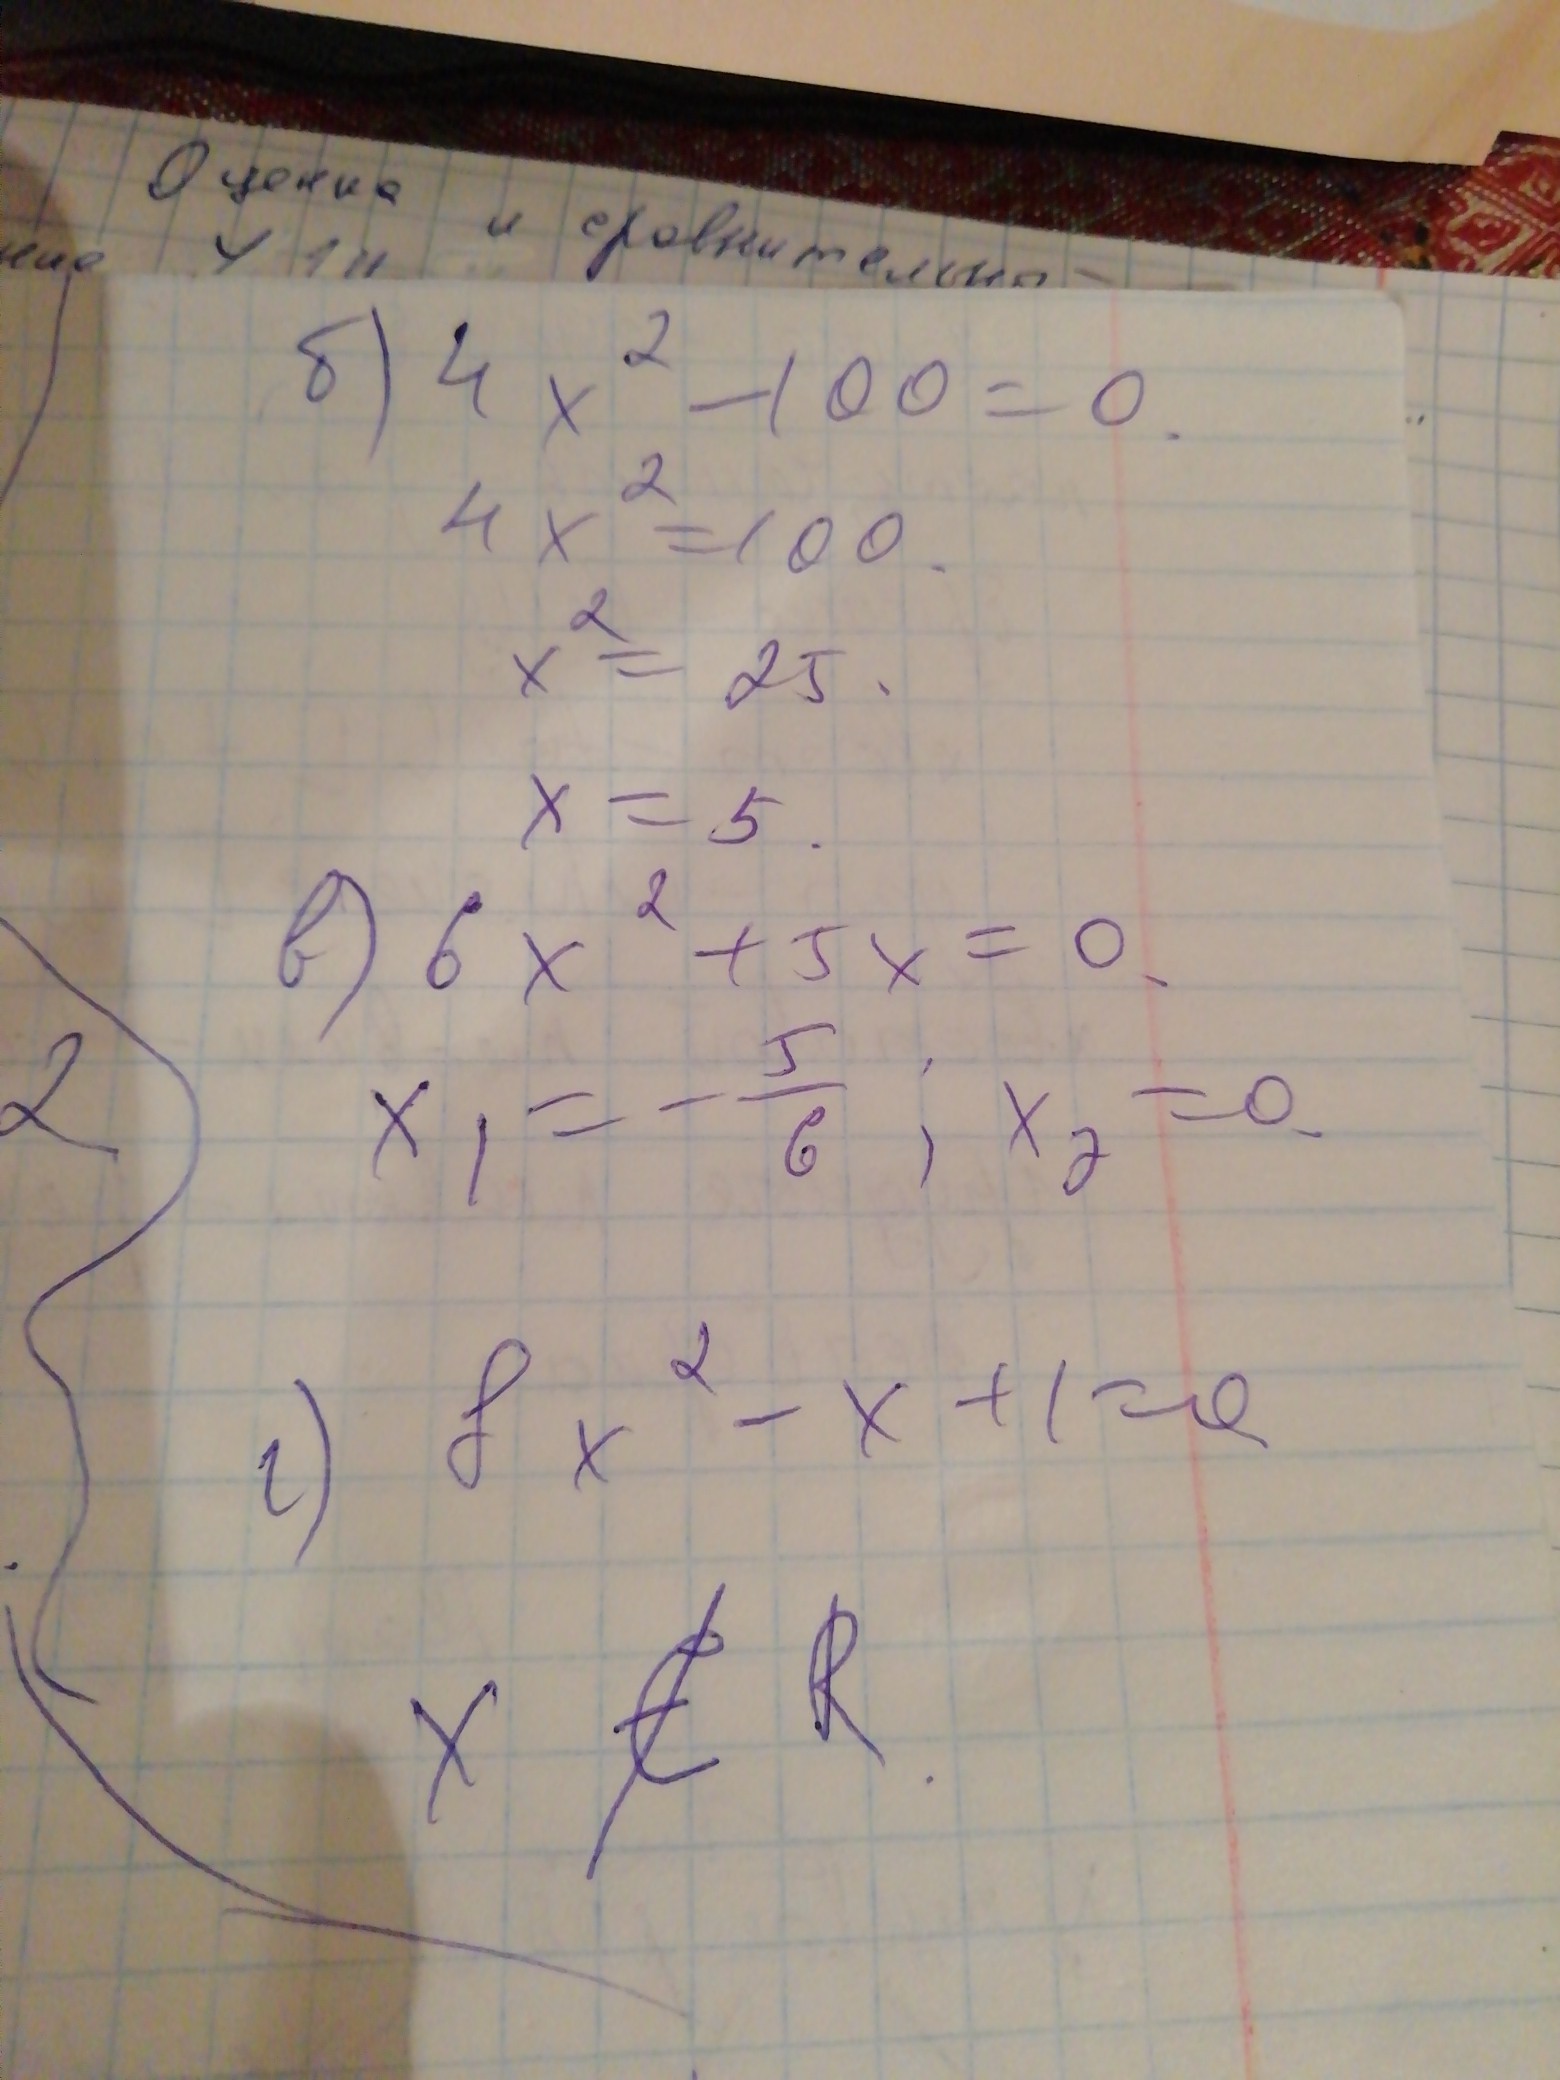 Оценка и сравнительно-
ние
б) 4x² - 100 = 0.
4x² = 100.
x² = 25.
x = 5.
в) 6x² + 5x = 0.
x₁ = - 5/6 ; x₂ = 0.
2
г) 8x² - x + 1 = 0
x ∉ R.